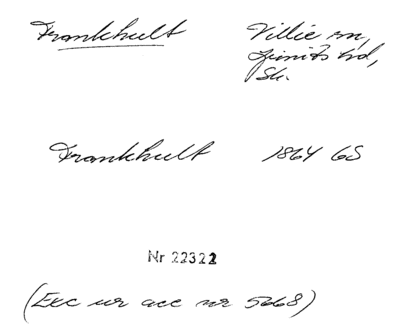 Frankhult Villie sn,
Ljunits hd,
Sk.
Frankhult 1864 GS
Nr 22322
(Exc ur acc nr 5668)